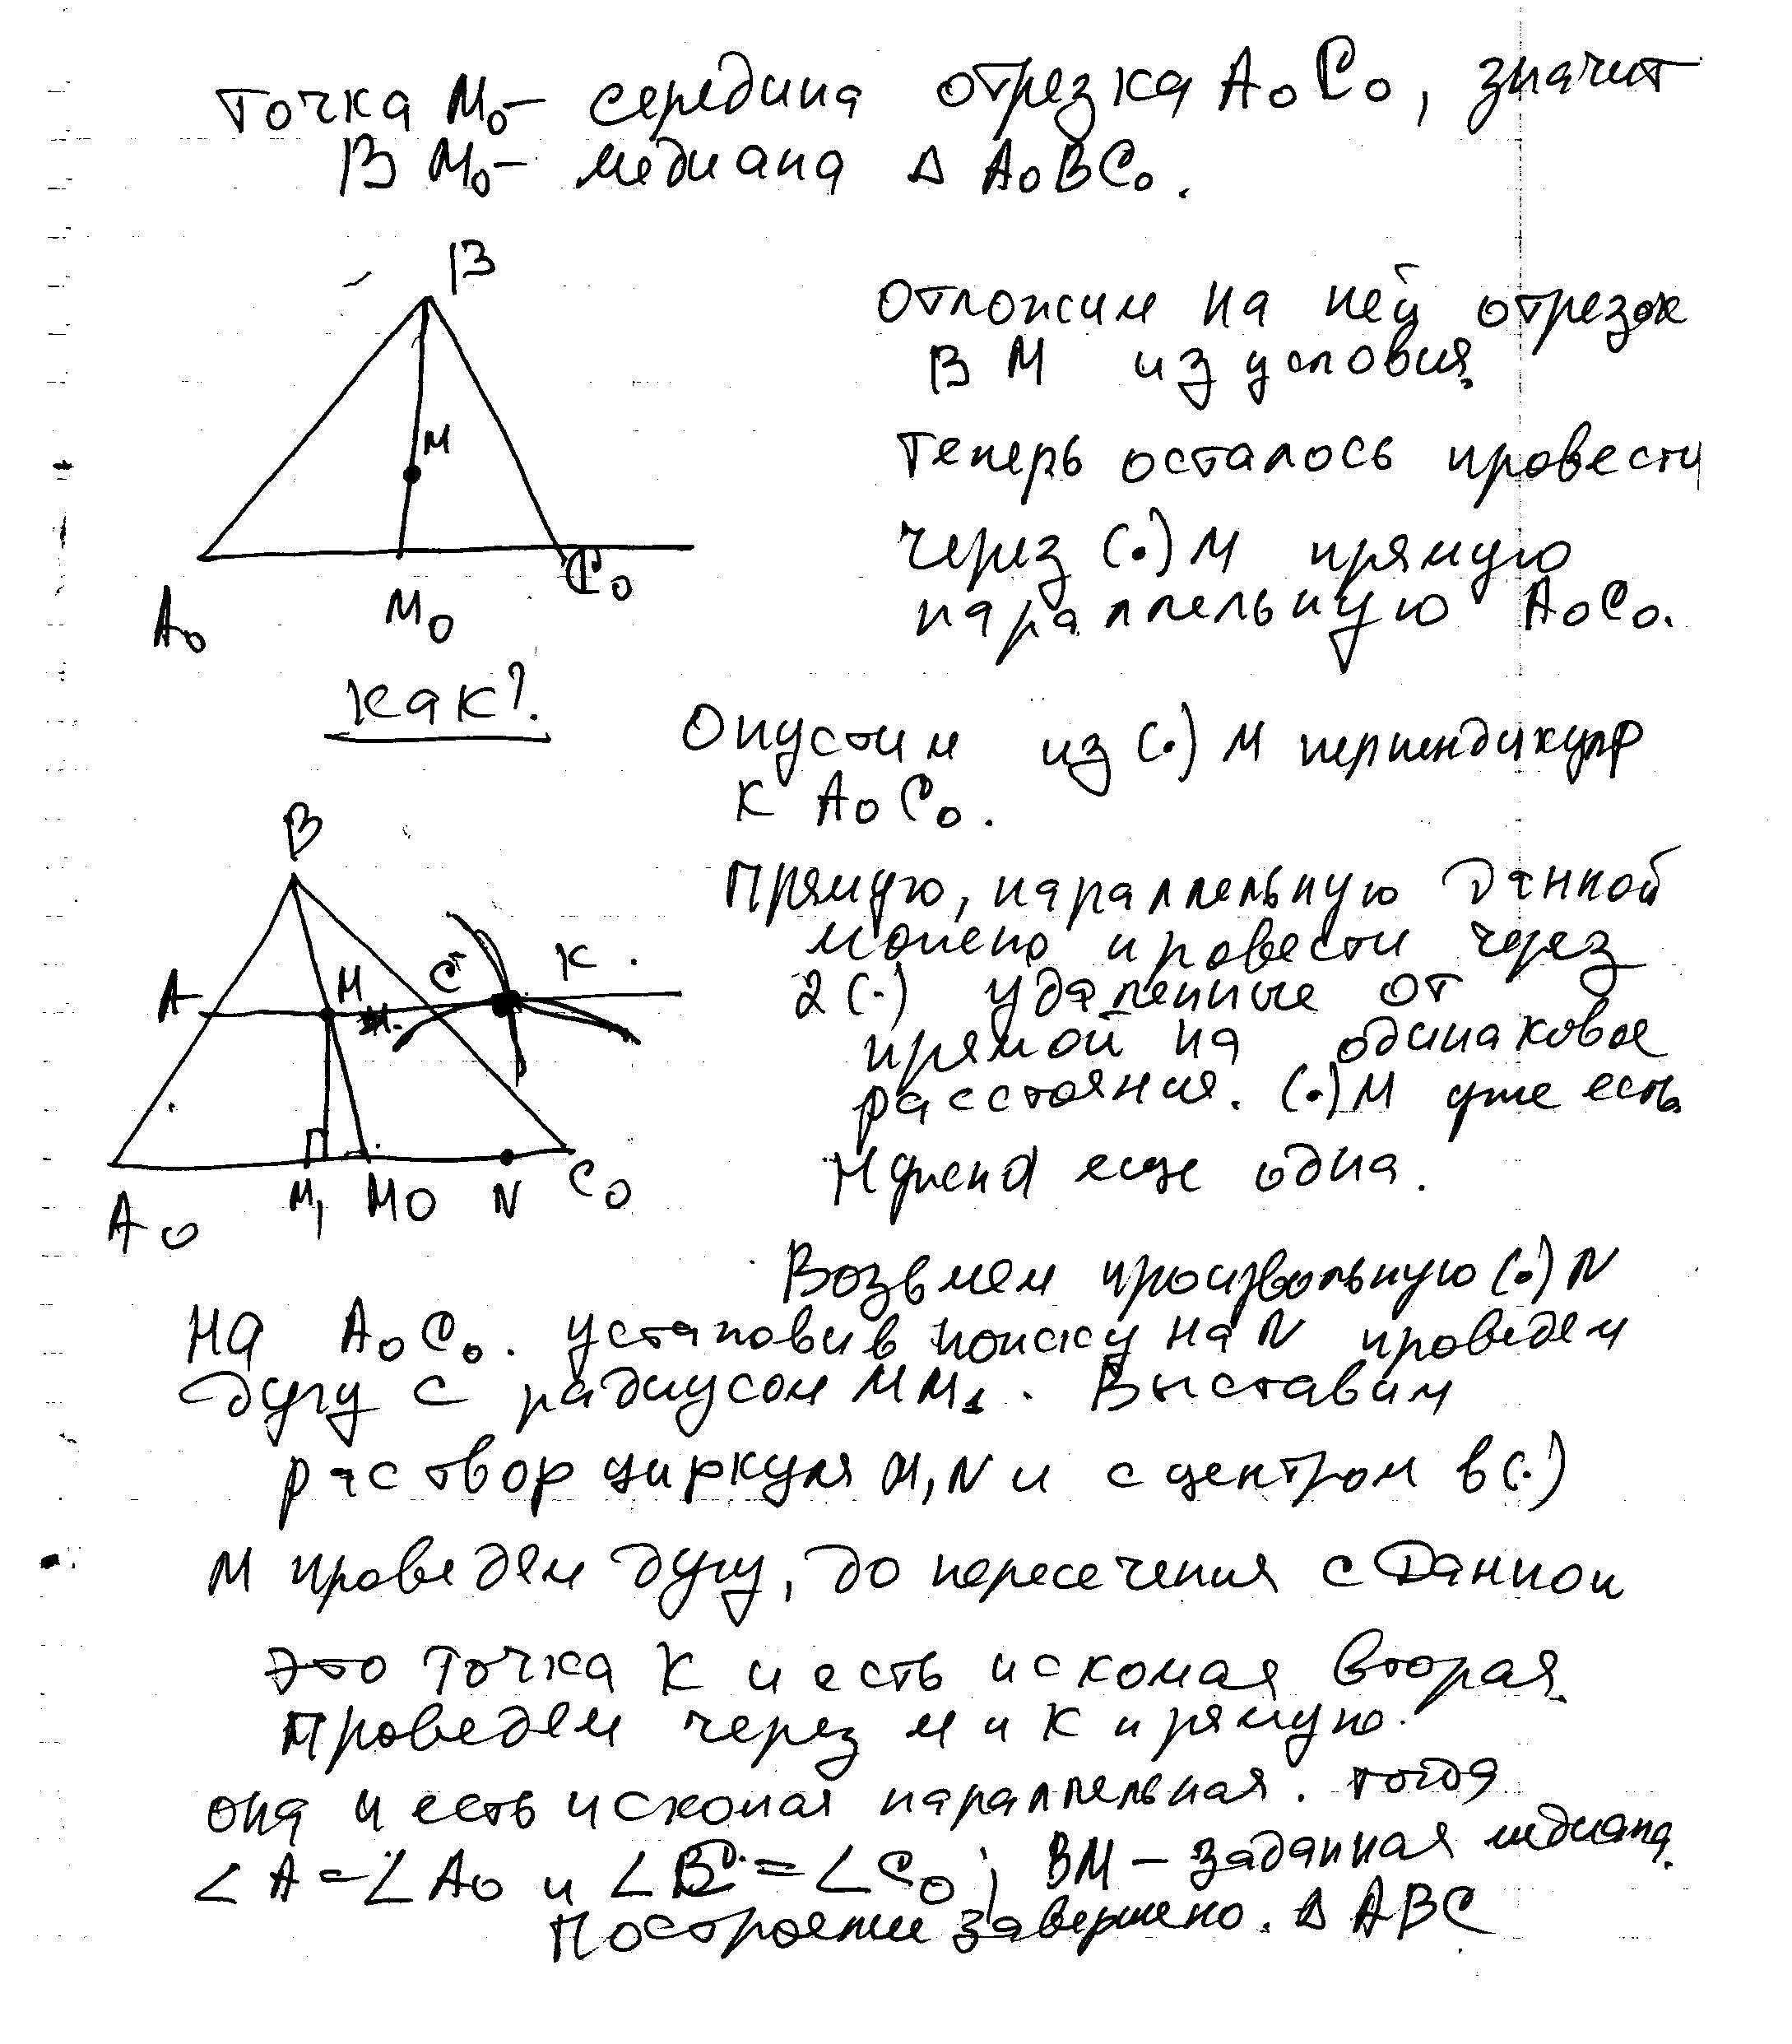 точка M₀ – середина отрезка A₀C₀, значит
BM₀ – медиана Δ A₀BC₀.
B
Отложим на ней отрезок
BM из условия.
M
Теперь осталось провести
через (•) M прямую
параллельную A₀C₀.
A₀ M₀ C₀
как?
Опустим из (•) M перпендикуляр
к A₀C₀.
B
Прямую, параллельную данной
можно провести через
2 (•) удаленные от
прямой на одинаковое
расстояния. (•) M уже есть.
Нужна еще одна.
A M C K.
A₀ M₁ M₀ N C₀
Возьмем произвольную (•) N
на A₀C₀. установив ножку на N проведем
дугу с радиусом MM₁. Выставим
раствор циркуля M₁N и с центром в (•)
M проведем дугу, до пересечения с данной
это точка K и есть искомая вторая.
Проведем через M и K прямую.
она и есть искомая параллельная. тогда
∠A = ∠A₀ и ∠C = ∠C₀; BM – заданная медиана.
Построение завершено. Δ ABC